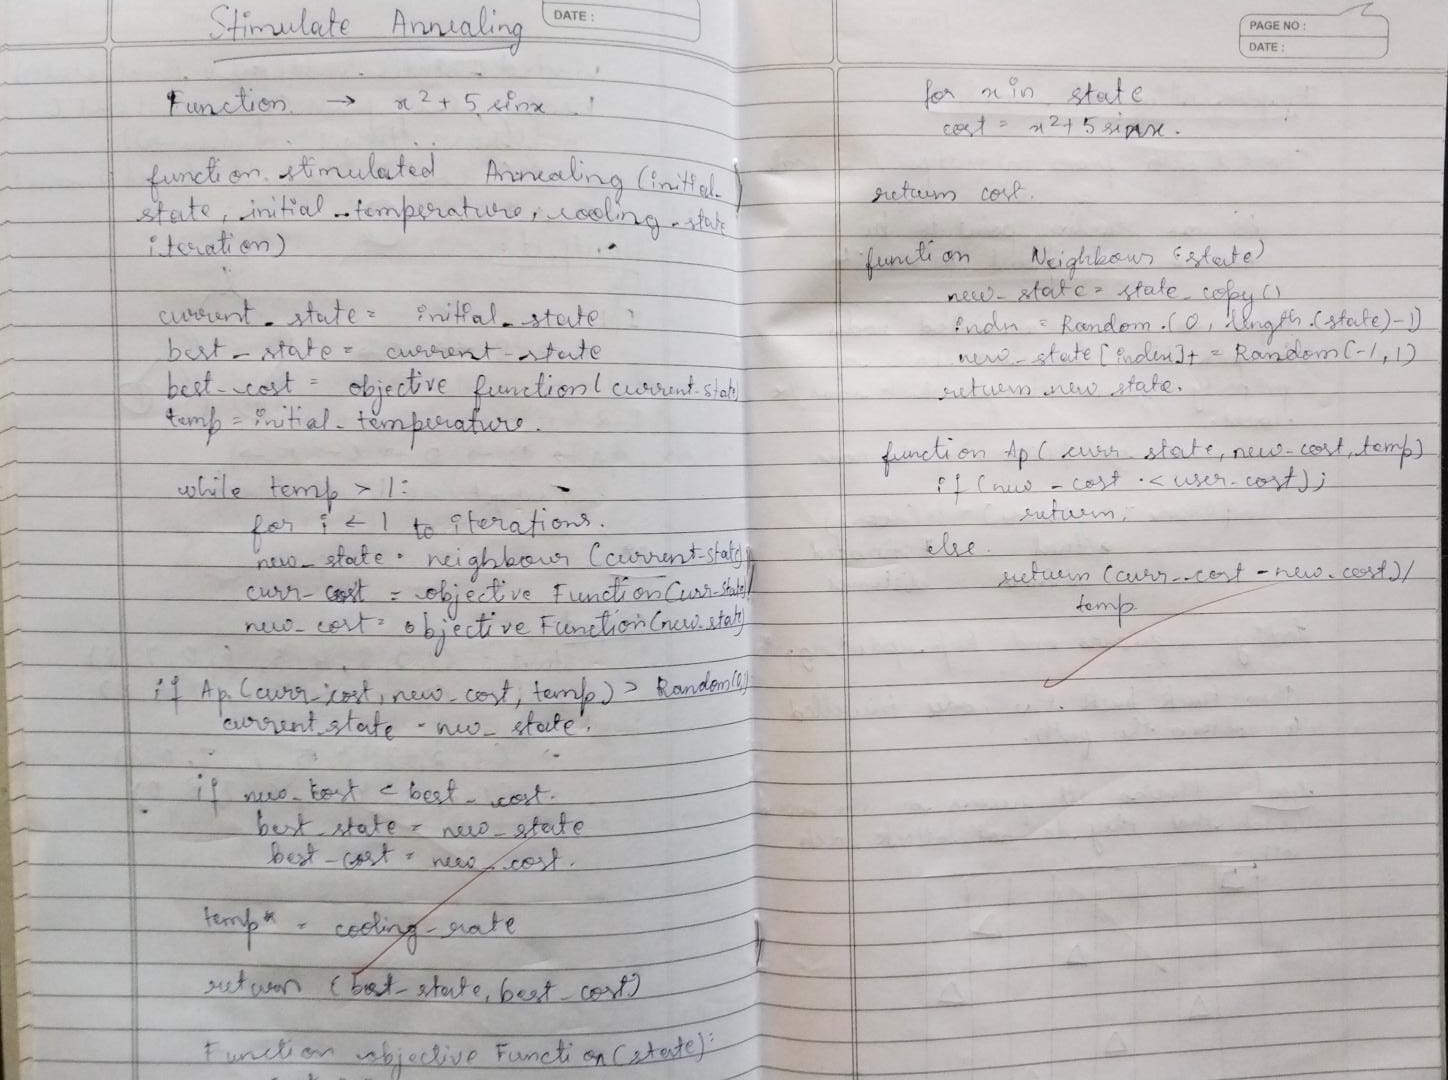 DATE :
Stimulate Annealing
Function → x² + 5 sinx
function stimulated Annealing (initial-
state, initial-temperature, cooling-state
iteration)
current_state = initial_state
best_state = current-state
best-cost = objective function (current-state)
temp = initial-temperature.
while temp > 1:
for i ← 1 to iterations.
new_state = neighbour (current-state)
curr-cost = objective Function (curr-state)
new_cost = objective Function (new_state)
if Ap (curr-cost, new_cost, temp) > Random(0,)
current_state = new_state.
if new_cost < best_cost.
best_state = new_state
best-cost = new_cost.
temp* = cooling-rate
return (best-state, best_cost)
Function objective Function (state):
PAGE NO :
DATE :
for x in state
cost = x² + 5 sinx.
return cost.
function Neighbour (state)
new_state = state_copy()
indn = Random.(0, length.(state)-1)
new_state [index]+ = Random(-1,1)
return new state.
function Ap ( curr state, new-cost, temp)
if (new-cost < user-cost);
return,
else.
return (curr-cost - new-cost)/
temp.